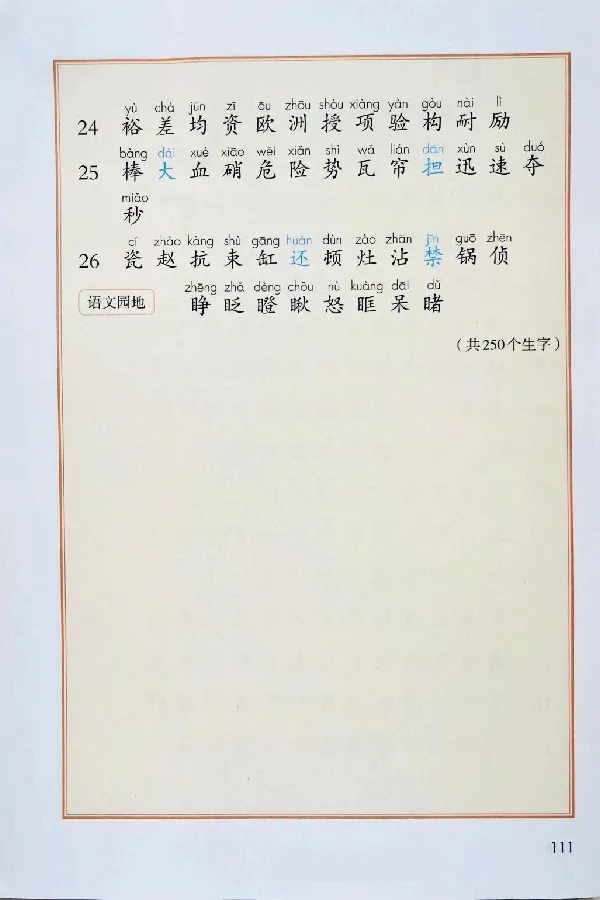 yù chā jūn zī ōu zhōu shòu xiàng yàn gòu nài lì
24 裕 差 均 资 欧 洲 授 项 验 构 耐 励
bàng dài xuè xiāo wēi xiǎn shì wǎ lián dān xùn sù duó
25 棒 大 血 硝 危 险 势 瓦 帘 担 迅 速 夺
miǎo
秒
cí zhào kàng shù gāng huán dùn zào zhān jīn guō zhēn
26 瓷 赵 抗 束 缸 还 顿 灶 沾 禁 锅 侦
zhēng zhǎ dèng chǒu nù kuàng dāi dǔ
语文园地 睁 眨 瞪 瞅 怒 眶 呆 睹
（共250个生字）
111